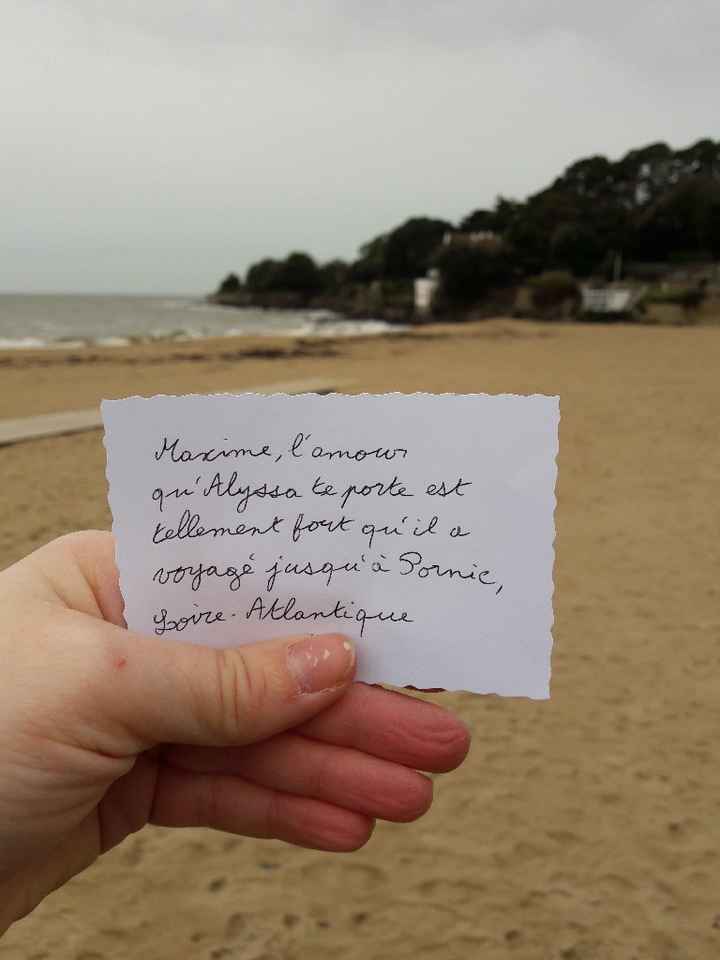 Maxime, l'amour
qu'Alyssa te porte est
tellement fort qu'il a
voyagé jusqu'à Pornic,
Loire-Atlantique